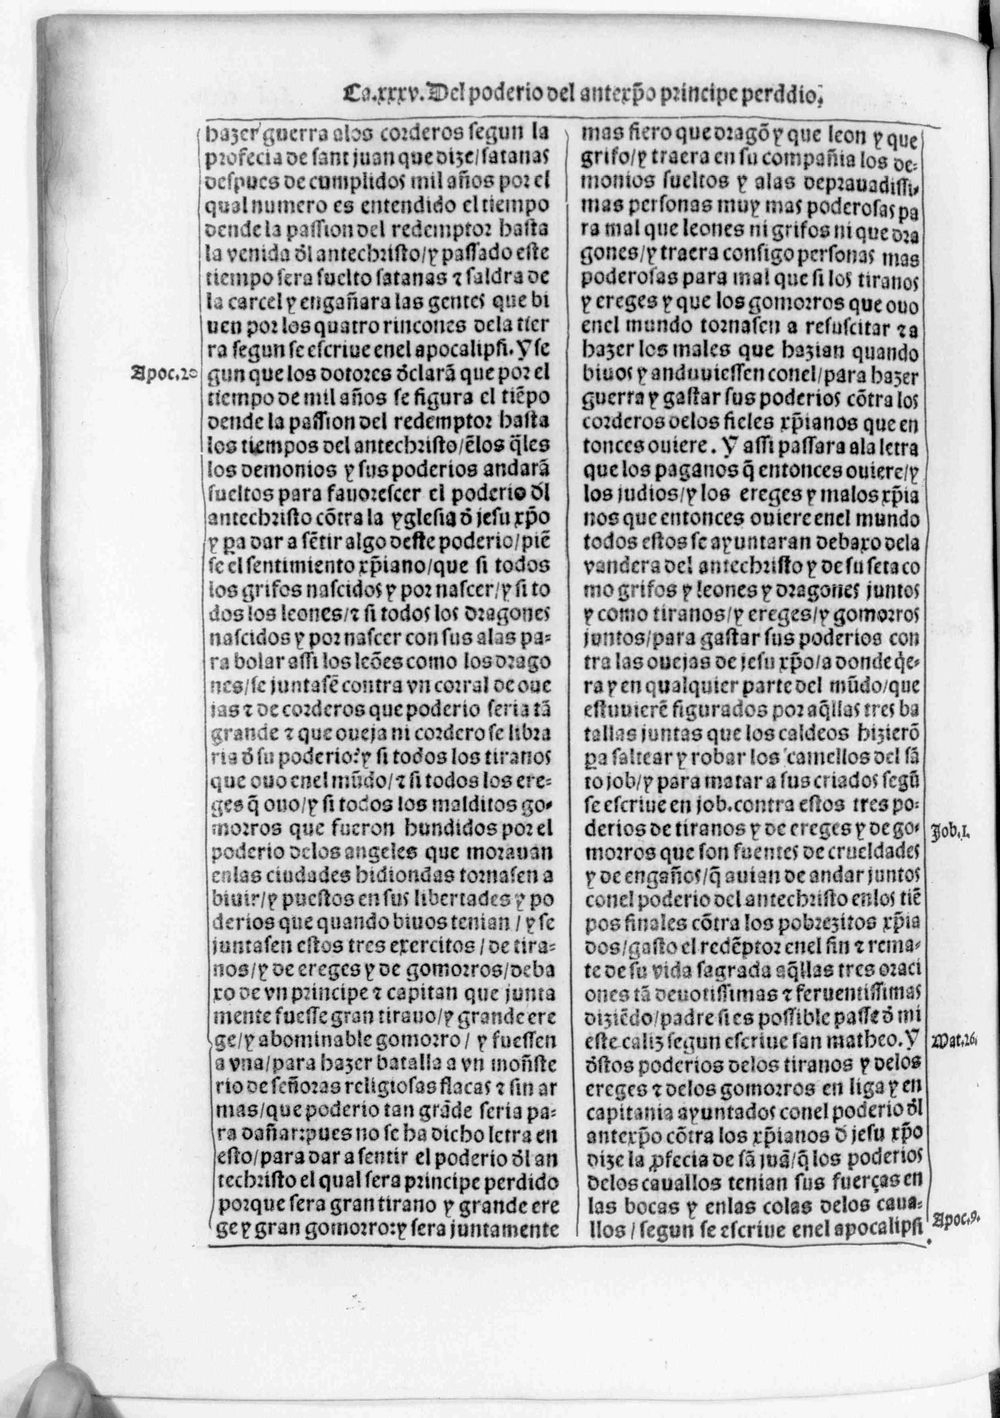 Ca.xxxv. Del poderio del antexp̃o principe perddio.
hazer guerra alos corderos segun la
profecia de sant juan que dize/satanas
despues de cumplidos mil años por el
qual numero es entendido el tiempo
dende la passion del redemptor hasta
la venida dl̃ antechristo/y passado este
tiempo sera suelto satanas ⁊ saldra de
la carcel y engañara las gentes que bi
uen por los quatro rincones dela tier
ra segun se escriue enel apocalipsi. Y se
Apoc.20
gun que los dotores d̃clarã que por el
tiempo de mil años se figura el tiẽpo
dende la passion del redemptor hasta
los tiempos del antechristo/ẽlos q̃les
los demonios y sus poderios andarã
sueltos para fauorescer el poderio dl̃
antechristo cõtra la yglesia d̃ jesu xp̃o
y p̱a dar a sẽtir algo deste poderio/piẽ
se el sentimiento xp̃iano/que si todos
los grifos nascidos y por nascer/y si to
dos los leones/⁊ si todos los dragones
nascidos y por nascer con sus alas pa-
ra bolar assi los leões como los drago
nes/se juntasẽ contra vn corral de oue
jas ⁊ de corderos que poderio seria tã
grande ⁊ que oueja ni cordero se libra
ria d̃ su poderio:y si todos los tiranos
que ouo enel mũdo/⁊ si todos los ere-
ges q̃ ouo/y si todos los malditos go-
morros que fueron hundidos por el
poderio delos angeles que morauan
enlas ciudades hidiondas tornasen a
biuir/y puestos en sus libertades y po
derios que quando biuos tenian/y se
juntasen estos tres exercitos/de tira-
nos/y de ereges y de gomorros/deba
xo de vn principe ⁊ capitan que junta
mente fuesse gran tirauo/y grande ere
ge/y abominable gomorro/ y fuessen
a vna/para hazer batalla a vn moñste
rio de señoras religiosas flacas ⁊ sin ar
mas/que poderio tan grãde seria pa-
ra dañar:pues no se ha dicho letra en
esto/para dar a sentir el poderio dl̃ an
techristo el qual sera principe perdido
porque sera gran tirano y grande ere
ge y gran gomorro:y sera juntamente
mas fiero que dragõ y que leon y que
grifo/y traera en su compañia los de-
monios sueltos y alas deprauadissi-
mas personas muy mas poderosas pa
ra mal que leones ni grifos ni que dra
gones/y traera consigo personas mas
poderosas para mal que si los tiranos
y ereges y que los gomorros que ouo
enel mundo tornasen a resuscitar ⁊ a
hazer los males que hazian quando
biuos y anduuiessen conel/para hazer
guerra y gastar sus poderios cõtra los
corderos delos fieles xp̃ianos que en
tonces ouiere. Y assi passara ala letra
que los paganos q̃ entonces ouiere/y
los judios/y los ereges y malos xp̃ia
nos que entonces ouiere enel mundo
todos estos se ayuntaran debaxo dela
vandera del antechristo y de su seta co
mo grifos y leones y dragones juntos
y como tiranos/y ereges/y gomorros
juntos/para gastar sus poderios con
tra las ouejas de jesu xp̃o/a donde q̃e-
ra y en qualquier parte del mũdo/que
estuuierẽ figurados por aq̃llas tres ba
tallas juntas que los caldeos hizierõ
p̱a saltear y robar los camellos del sã
to job/y para matar a sus criados segũ
se escriue en job.contra estos tres po-
derios de tiranos y de ereges y de go-
Job.1.
morros que son fuentes de crueldades
y de engaños/q̃ auian de andar juntos
conel poderio del antechristo enlos tiẽ
pos finales cõtra los pobrezitos xp̃ia
dos/gasto el redẽptor enel fin ⁊ rema-
te de su vida sagrada aq̃llas tres oraci
ones tã deuotissimas ⁊ feruentissimas
diziẽdo/padre si es possible passe d̃ mi
este caliz segun escriue san matheo. Y
Mat.26.
d̃stos poderios delos tiranos y delos
ereges ⁊ delos gomorros en liga y en
capitania ayuntados conel poderio dl̃
antexp̃o cõtra los xp̃ianos d̃ jesu xp̃o
dize la ꝓfecia de sã juã/q̃ los poderios
delos cauallos tenian sus fuerças en
las bocas y enlas colas delos caua-
llos/segun se escriue enel apocalipsi
Apoc.9.